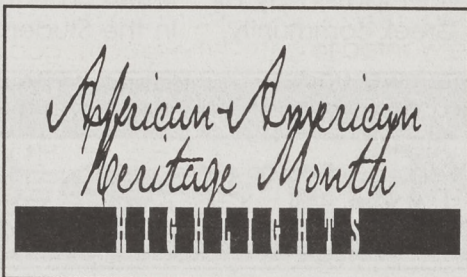 African-American
Heritage Month
HIGHLIGHTS